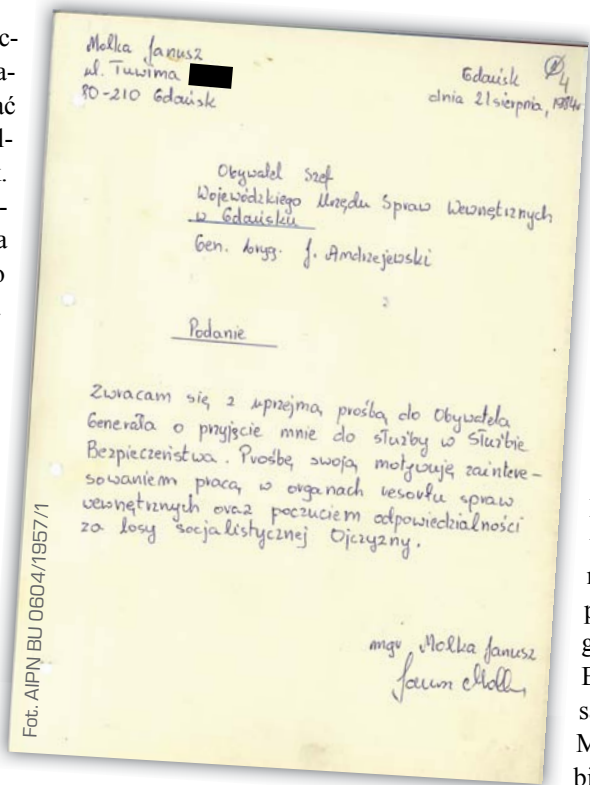 Molka Janusz
ul. Tuwima
80-210 Gdańsk
Gdańsk
dnia 21 sierpnia, 1984r
4
Obywatel Szef
Wojewódzkiego Urzędu Spraw Wewnętrznych
w Gdańsku
Gen. bryg. J. Andrzejewski
Podanie
Zwracam się z uprzejmą prośbą do Obywatela
Generała o przyjęcie mnie do służby w Służbie
Bezpieczeństwa. Prośbę swoją motywuję zaintere-
sowaniem pracą w organach resortu spraw
wewnętrznych oraz poczuciem odpowiedzialności
za losy socjalistycznej Ojczyzny.
mgr Molka Janusz
Fot. AIPN BU 0604/1957/1